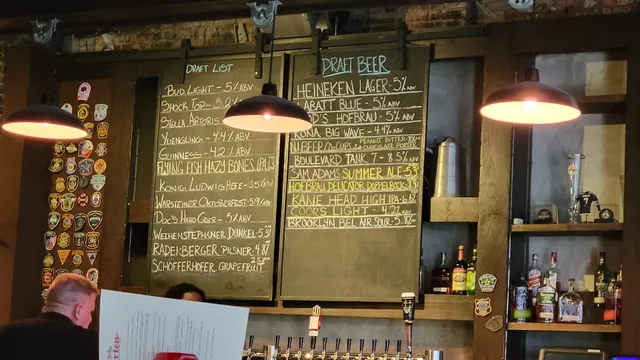 DRAFT LIST
BUD LIGHT - 5% ABV
SHOCK TOP - 5.2%
STELLA ARTOIS
YUENGLING - 4.4% ABV
GUINNESS - 4.2% ABV
FLYING FISH HAZY BONES IPA
KONIG LUDWIG HEFE - 5% ABV
WARSTEINER OKTOBERFEST 5.9% ABV
DOC'S HARD CIDER - 5% ABV
WEIHENSTEPHANER DUNKEL - 5.3%
RADEBERGER PILSNER 4.8%
SCHOFFERHOFER GRAPEFRUIT 2.5%
DRAFT BEER
HEINEKEN LAGER - 5% ABV
LABATT BLUE - 5% ABV
HOFBRAU - 5% ABV
KONA BIG WAVE - 4.4% ABV
NJ BEER CO - CUPS PEANUT BUTTER
CHOCOLATE PORTER
BOULEVARD TANK 7 - 8.5% ABV
SAM ADAMS SUMMER ALE - 5.3
HOFBRAU DELICATOR DOPPELBOCK
KANE HEAD HIGH IPA
COORS LIGHT - 4.2% ABV
BROOKLYN BEL AIR SOUR - 5.8%